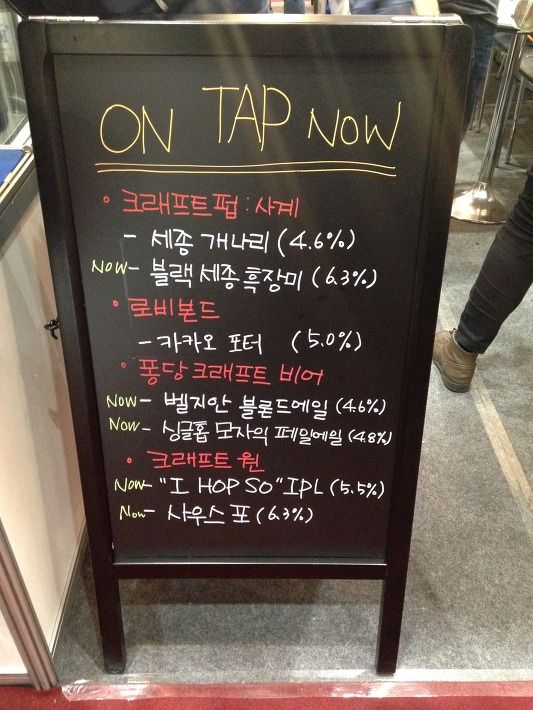 ON TAP NOW
• 크래프트펍 : 사계
- 세종 개나리 (4.6%)
NOW - 블랙 세종 흑장미 (6.3%)
• 로비본드
- 카카오 포터 (5.0%)
• 퐁당 크래프트 비어
NOW - 벨지안 블론드에일 (4.6%)
NOW - 싱글홉 모자익 페일에일 (4.8%)
• 크래프트 원
NOW - "I HOP SO" IPL (5.5%)
NOW - 사우스 포 (6.3%)